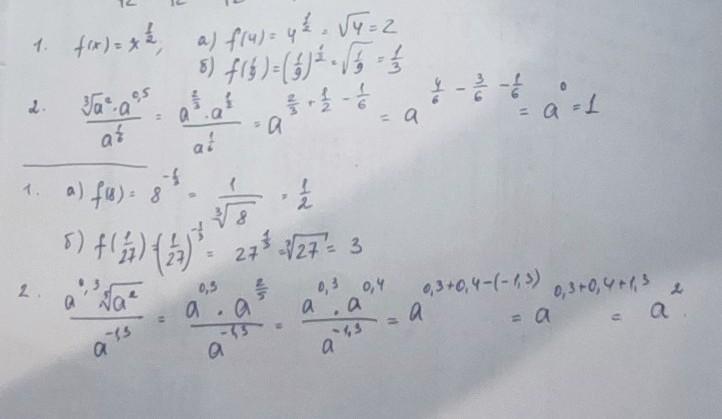 1. f(x) = x^{1/2}; а) f(4) = 4^{1/2} = √4 = 2
б) f(1/9) = (1/9)^{1/2} = √(1/9) = 1/3
2. (∛a² · a^{0,5}) / a^{1/6} = (a^{2/3} · a^{1/2}) / a^{1/6} = a^{2/3 + 1/2 - 1/6} = a^{4/6 - 3/6 - 1/6} = a^0 = 1
1. а) f(8) = 8^{-1/3} = 1/∛8 = 1/2
б) f(1/27) = (1/27)^{-1/3} = 27^{1/3} = ∛27 = 3
2. (a^{0,3} ⁵√a²) / a^{-1,3} = (a^{0,3} · a^{2/5}) / a^{-1,3} = (a^{0,3} · a^{0,4}) / a^{-1,3} = a^{0,3+0,4-(-1,3)} = a^{0,3+0,4+1,3} = a².